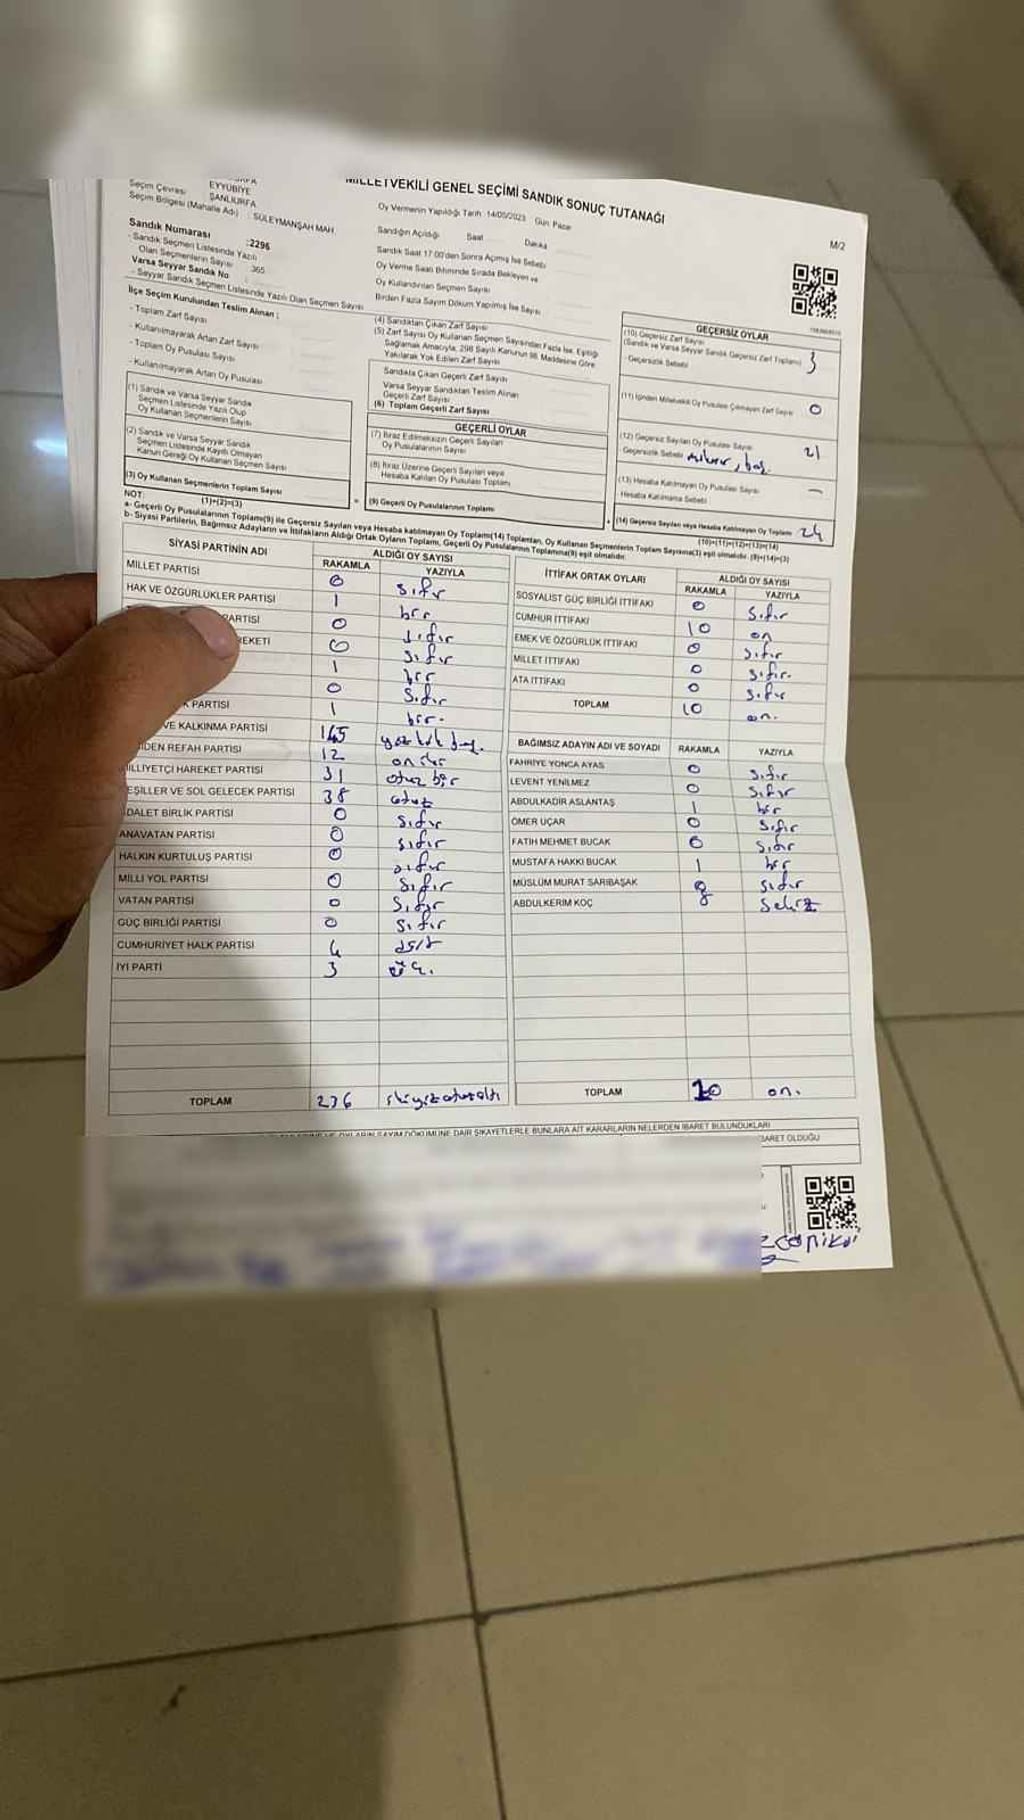 MİLLETVEKİLİ GENEL SEÇİMİ SANDIK SONUÇ TUTANAĞI
M/2
EYYÜBİYE
Seçim Çevresi : ŞANLIURFA
Seçim Bölgesi (Mahalle Adı) : SÜLEYMANŞAH MAH
Sandık Numarası :2296
- Sandık Seçmen Listesinde Yazılı
Olan Seçmenlerin Sayısı : 365
Varsa Seyyar Sandık No :
- Seyyar Sandık Seçmen Listesinde Yazılı Olan Seçmen Sayısı
Oy Vermenin Yapıldığı Tarih :14/05/2023 Gün: Pazar
Sandığın Açıldığı Saat Dakika
Sandık Saat 17:00'den Sonra Açılmış İse Sebebi
Oy Verme Saati Bitiminde Sırada Bekleyen ve
Oy Kullandırılan Seçmen Sayısı
Birden Fazla Sayım Döküm Yapılmış İse Sayısı
İlçe Seçim Kurulundan Teslim Alınan :
- Toplam Zarf Sayısı
- Kullanılmayarak Artan Zarf Sayısı
- Toplam Oy Pusulası Sayısı
- Kullanılmayarak Artan Oy Pusulası
(1) Sandık ve Varsa Seyyar Sandık
Seçmen Listesinde Yazılı Olup
Oy Kullanan Seçmenlerin Sayısı
(2) Sandık ve Varsa Seyyar Sandık
Seçmen Listesinde Kayıtlı Olmayan
Kanun Gereği Oy Kullanan Seçmen Sayısı
(3) Oy Kullanan Seçmenlerin Toplam Sayısı
(1)+(2)=(3)
(4) Sandıktan Çıkan Zarf Sayısı
(5) Zarf Sayısı Oy Kullanan Seçmen Sayısından Fazla İse, Eşitliği
Sağlamak Amacıyla, 298 Sayılı Kanunun 98. Maddesine Göre
Yakılarak Yok Edilen Zarf Sayısı
Sandıkta Çıkan Geçerli Zarf Sayısı
Varsa Seyyar Sandıktan Teslim Alınan
Geçerli Zarf Sayısı
(6) Toplam Geçerli Zarf Sayısı
GEÇERLİ OYLAR
(7) İtiraz Edilmeksizin Geçerli Sayılan
Oy Pusulalarının Sayısı
(8) İtiraz Üzerine Geçerli Sayılan veya
Hesaba Katılan Oy Pusulası Toplamı
(9) Geçerli Oy Pusulalarının Toplamı
GEÇERSİZ OYLAR
(10) Geçersiz Zarf Sayısı 3
(Sandık ve Varsa Seyyar Sandık Geçersiz Zarf Toplamı)
Geçersizlik Sebebi
(11) İçinden Milletvekili Oy Pusulası Çıkmayan Zarf Sayısı 0
(12) Geçersiz Sayılan Oy Pusulası Sayısı 21
Geçersizlik Sebebi
(13) Hesaba Katılmayan Oy Pusulası Sayısı —
Hesaba Katılmama Sebebi
(14) Geçersiz Sayılan veya Hesaba Katılmayan Oy Toplamı 24
(10)+(11)+(12)+(13)=(14)
NOT:
a- Geçerli Oy Pusulalarının Toplamı(9) ile Geçersiz Sayılan veya Hesaba katılmayan Oy Toplamı(14) Toplamları, Oy Kullanan Seçmenlerin Toplam Sayısına(3) eşit olmalıdır. (9)+(14)=(3)
b- Siyasi Partilerin, Bağımsız Adayların ve İttifakların Aldığı Ortak Oyların Toplamı, Geçerli Oy Pusulalarının Toplamına(9) eşit olmalıdır.
SİYASİ PARTİNİN ADI ALDIĞI OY SAYISI
RAKAMLA YAZIYLA
MİLLET PARTİSİ 0 sıfır
HAK VE ÖZGÜRLÜKLER PARTİSİ 1 bir
PARTİSİ 0 sıfır
HAREKETİ 0 sıfır
1 bir
0 sıfır
K PARTİSİ 1 bir.
VE KALKINMA PARTİSİ 145
YENİDEN REFAH PARTİSİ 12 on iki
MİLLİYETÇİ HAREKET PARTİSİ 31 otuz bir
YEŞİLLER VE SOL GELECEK PARTİSİ 38 otuz
ADALET BİRLİK PARTİSİ 0 sıfır
ANAVATAN PARTİSİ 0 sıfır
HALKIN KURTULUŞ PARTİSİ 0 sıfır
MİLLİ YOL PARTİSİ 0 sıfır
VATAN PARTİSİ 0 sıfır
GÜÇ BİRLİĞİ PARTİSİ 0 sıfır
CUMHURİYET HALK PARTİSİ 4 dört
İYİ PARTİ 3 üç.
TOPLAM 236 ikiyüzotuzaltı
İTTİFAK ORTAK OYLARI ALDIĞI OY SAYISI
RAKAMLA YAZIYLA
SOSYALİST GÜÇ BİRLİĞİ İTTİFAKI 0 sıfır
CUMHUR İTTİFAKI 10 on
EMEK VE ÖZGÜRLÜK İTTİFAKI 0 sıfır
MİLLET İTTİFAKI 0 sıfır.
ATA İTTİFAKI 0 sıfır
TOPLAM 10 on.
BAĞIMSIZ ADAYIN ADI VE SOYADI RAKAMLA YAZIYLA
FAHRİYE YONCA AYAS 0 sıfır
LEVENT YENİLMEZ 0 sıfır
ABDULKADİR ASLANTAŞ 1 bir
ÖMER UÇAR 0 sıfır
FATİH MEHMET BUCAK 0 sıfır
MUSTAFA HAKKI BUCAK 1 bir
MÜSLÜM MURAT SARIBAŞAK 0 sıfır
ABDULKERİM KOÇ 8 sekiz
TOPLAM 10 on.
OYLARIN SAYIM DÖKÜMÜNE DAİR ŞİKAYETLERLE BUNLARA AİT KARARLARIN NELERDEN İBARET BULUNDUKLARI
İBARET OLDUĞU